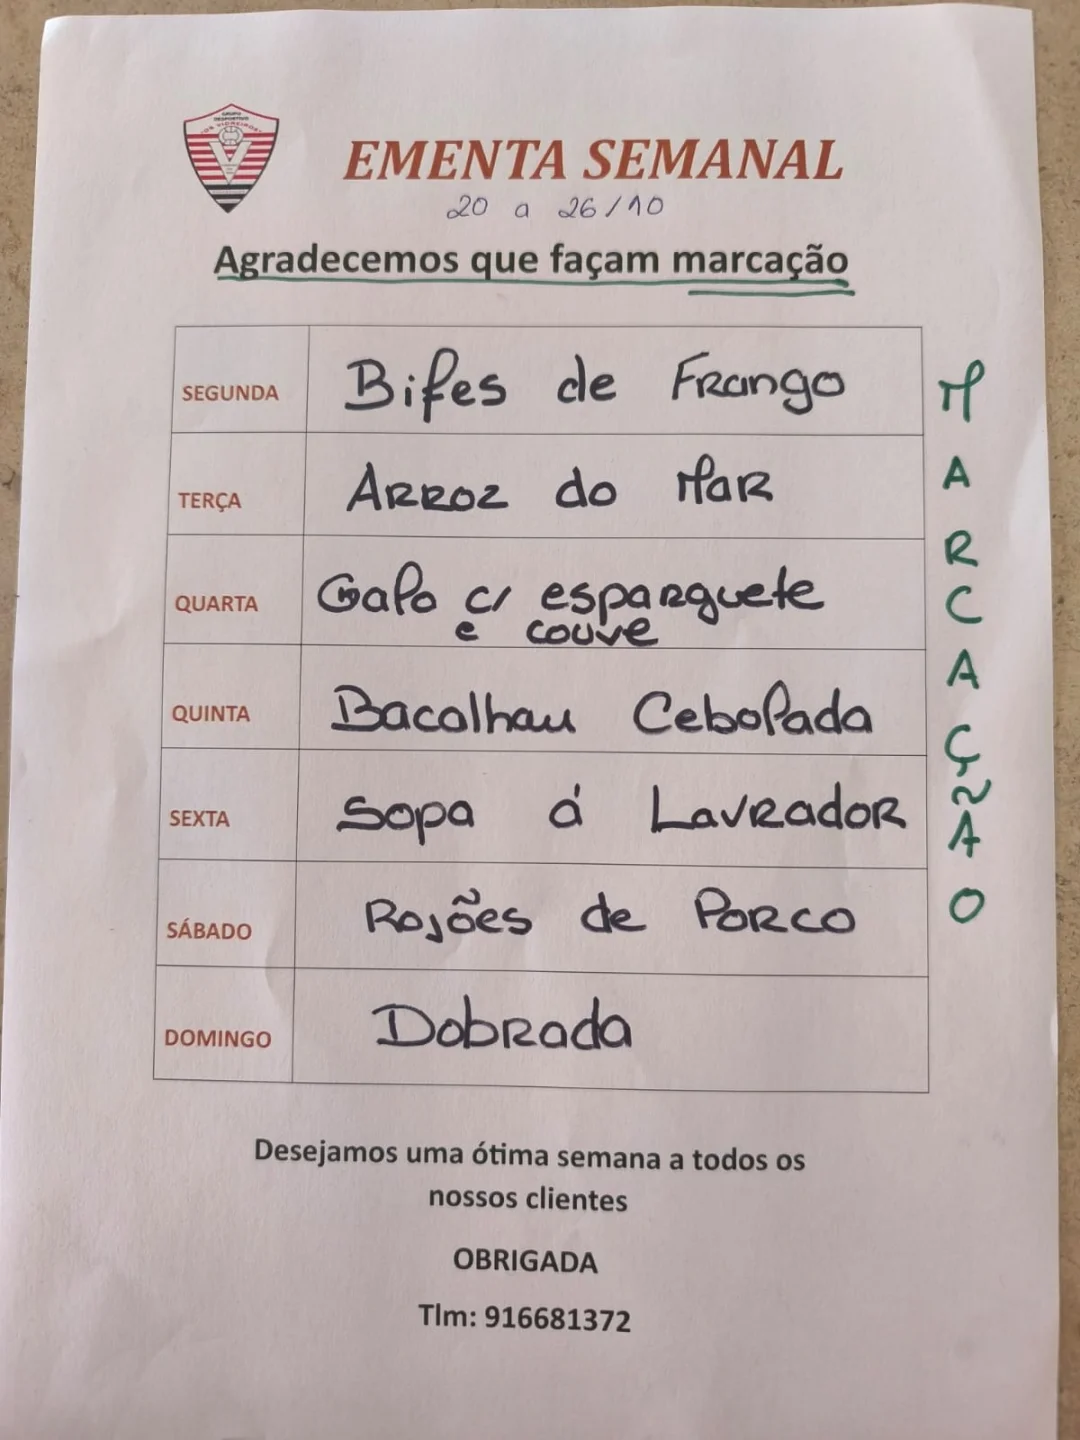 GRUPO
DESPORTIVO
"OS VIDREIROS"
EMENTA SEMANAL
20 a 26/10
Agradecemos que façam marcação
SEGUNDA Bifes de Frango
TERÇA Arroz do Mar
QUARTA Galo c/ esparguete
e couve
QUINTA Bacalhau Cebolada
SEXTA Sopa á Lavrador
SÁBADO Rojões de Porco
DOMINGO Dobrada
MARCAÇÃO
Desejamos uma ótima semana a todos os
nossos clientes
OBRIGADA
Tlm: 916681372